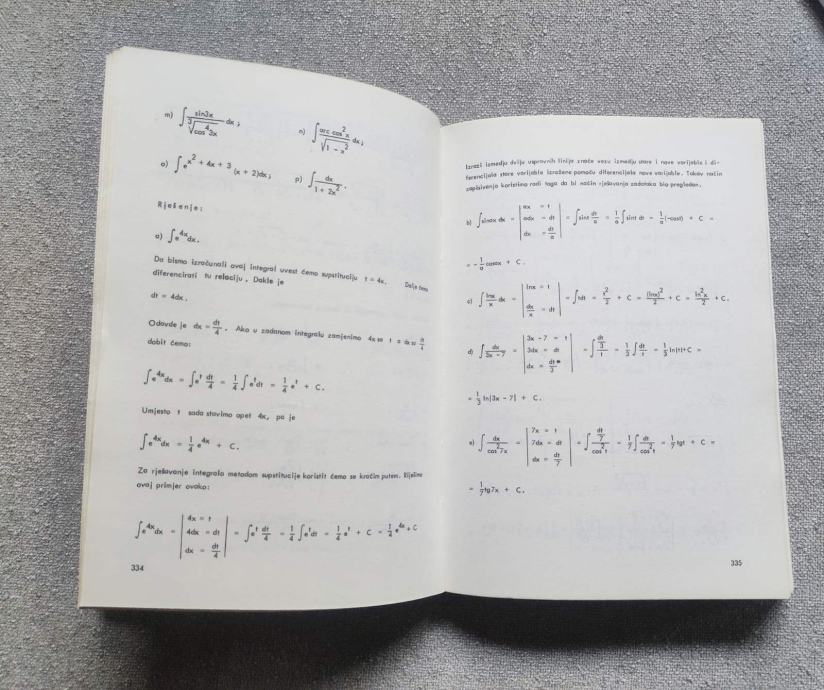 m) ∫ sin3x / ∛(cos⁴3x) dx ;  n) ∫ arc cos²x / √(1 - x²) dx ;
o) ∫e^(x² + 4x + 3) (x + 2)dx ;  p) ∫ dx / (1 + 2x²) .
Rješenje:
a) ∫e^(4x)dx.
Da bismo izračunali ovaj integral uvest ćemo supstituciju t = 4x. Dalje ćemo
diferencirati tu relaciju. Dakle je
dt = 4dx.
Odavde je dx = dt/4 . Ako u zadanom integralu zamjenimo 4x sa t a dx sa dt/4
dobit ćemo:
∫e^(4x)dx = ∫e^t dt/4 = 1/4 ∫e^t dt = 1/4 e^t + C.
Umjesto t sada stavimo opet 4x, pa je
∫e^(4x)dx = 1/4 e^(4x) + C.
Za rješavanje integrala metodom supstitucije koristit ćemo se kraćim putem. Riješimo
ovaj primjer ovako:
∫e^(4x)dx = | 4x = t ; 4dx = dt ; dx = dt/4 | = ∫e^t dt/4 = 1/4 ∫e^t dt = 1/4 e^t + C = 1/4 e^(4x) + C
334
Izrazi izmedju dvije uspravnih linije znače vezu izmedju stare i nove varijable i di-
ferencijala stare varijable izražene pomoću diferencijala nove varijable. Takav način
zapisivanja koristimo radi toga da bi način rješavanja zadataka bio pregledan.
b) ∫sinax dx = | ax = t ; adx = dt ; dx = dt/a | = ∫sint dt/a = 1/a ∫sint dt = 1/a (-cost) + C =
= - 1/a cosax + C .
c) ∫ lnx/x dx = | lnx = t ; dx/x = dt | = ∫tdt = t²/2 + C = (lnx)²/2 + C = ln²x/2 + C.
d) ∫ dx/(3x - 7) = | 3x - 7 = t ; 3dx = dt ; dx = dt/3 | = ∫ (dt/3)/t = 1/3 ∫ dt/t = 1/3 ln|t|+C =
= 1/3 ln|3x - 7| + C.
e) ∫ dx/cos²7x = | 7x = t ; 7dx = dt ; dx = dt/7 | = ∫ (dt/7)/cos²t = 1/7 ∫ dt/cos²t = 1/7 tgt + C =
= 1/7 tg7x + C.
335